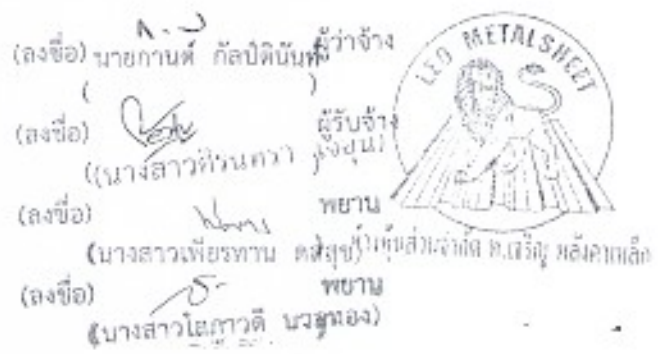 (ลงชื่อ) นายกานต์ กัลป์ตินันท์ ผู้ว่าจ้าง
( )
(ลงชื่อ) ผู้รับจ้าง
((นางสาว
(ลงชื่อ) พยาน
(นางสาวเพียรทาน
(ลงชื่อ) พยาน
(นางสาวโสภาวดี บวรทอง)
LEO METALSHEET
ห้างหุ้นส่วนจำกัด ท.เจริญ หลังคาเหล็ก